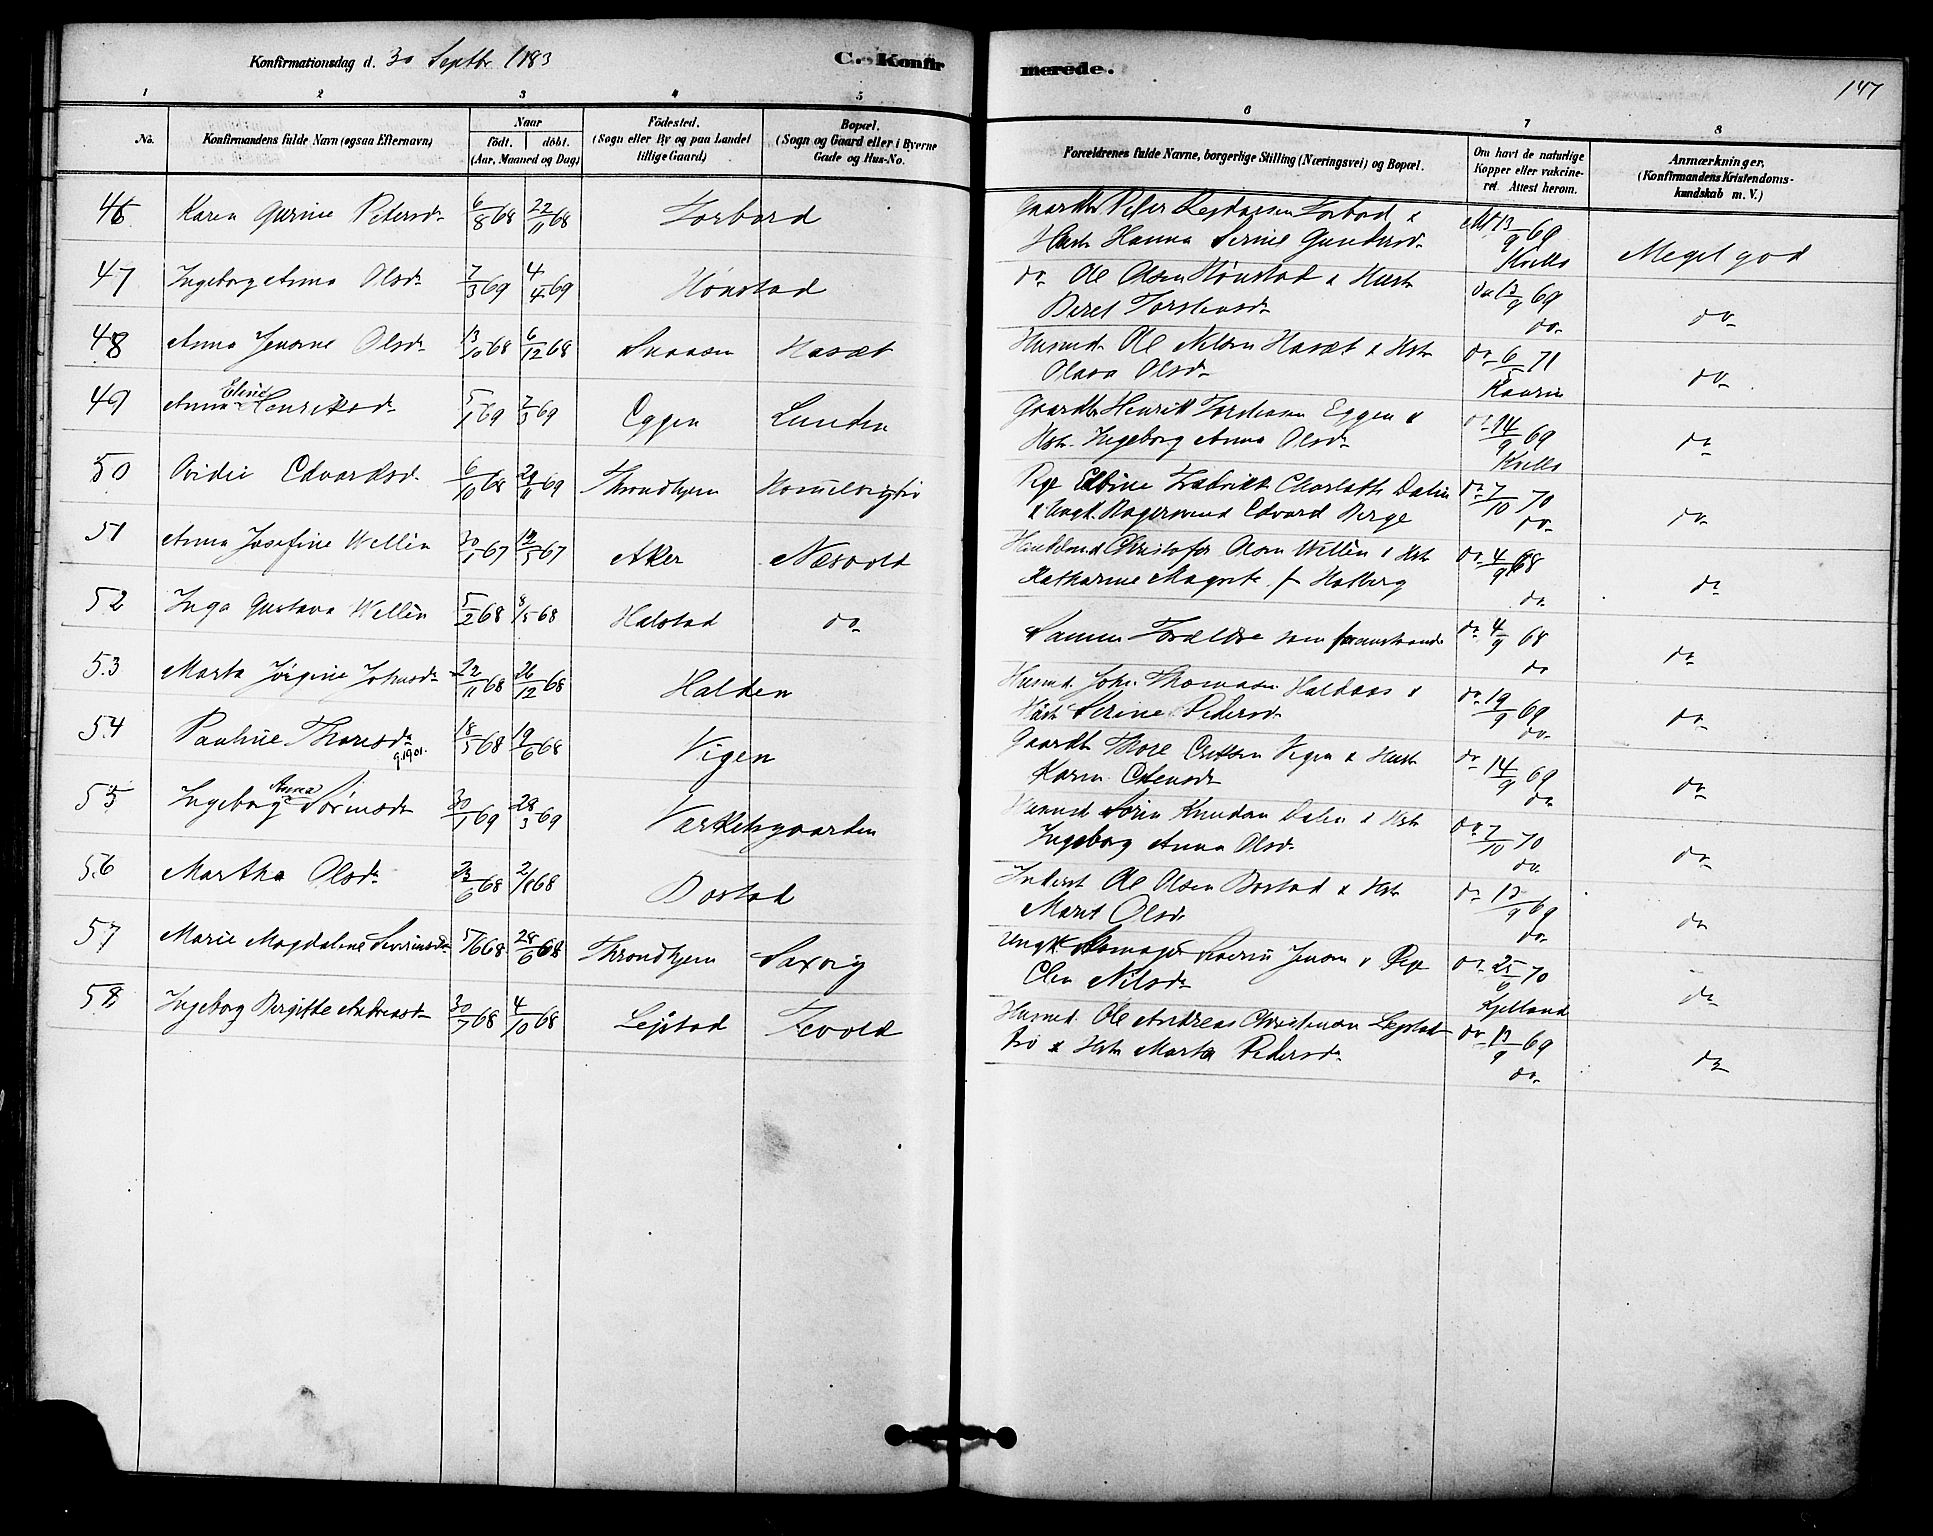 Konfirmationsdag d. 30 Septbr 1883
C. Konfirmerede.
147
1 2 3 4 5 6 7 8
No.
Konfirmandens fulde Navn (ogsaa Efternavn)
Naar
födt. döbt.
(Aar, Maaned og Dag)
Födested.
(Sogn eller By og paa Landet
tillige Gaard)
Bopæl.
(Sogn og Gaard eller i Byerne
Gade og Hus-No.
Forældrenes fulde Navne, borgerlige Stilling (Næringsvei) og Bopæl.
Om havt de naturlige
Kopper eller vakcine-
ret. Attest herom.
Anmærkninger.
(Konfirmandens Kristendoms-
kundskab m. V.)
46 Karen Gurine Petersdr 6/8 68 22/11 68 Forbord
Gaardbr Peter Forbord &
Hustr Hanna Serine Gundersdr 13/9 69 Meget god
47 Ingeborg Anna Olsdr 7/3 69 4/4 69 Hönstad
do Ole Olsen Hönstad & Hustr
Beret Torstensdr do 13/9 69 do do
48 Anna Jenorne Olsdr 13/10 68 6/12 68 Snaasen Hasæt
Husmd Ole Nilsen Hasæt & Hstr
Olava Olsdr do 6/5 71 do
49 Anna Elesie Henriksdr 5/1 69 7/3 69 Eggen Lunden
Gaardbr Henrik Torstensen Eggen &
Hstr Ingeborg Anna Olsdr do 14/9 69 do
50 Ovidie Edvardsd. 6/10 68 Throndhjem
Pige Elbine Fredrikke Charlotte Dalin
& Ungk. Edvard Berge do 7/10 70 do do
51 Anna Josefine Wellèn 30/1 67 12/5 67 Aker Næsvold
Christofer Olsen Wellèn & Hstr
Katharine Magrete f Hatberg do 4/9 68 do do
52 Inga Gustava Wellèn 5/2 68 8/5 68 Halstad do
Samme Forældre som foranstaaende do 4/9 68 do do
53 Marta Jörgine Johnsdr 22/11 68 26/12 68 Halden
Husmd John Thomasen Haldaas &
Hustr Serine Pedersdr do 19/9 69 do do
54 Pauline Thoresdr 18/5 68 19/6 68 Vigen
g. 1901.
Gaardbr Thore Vigen & Hustr
Karen do 14/9 69 do do
55 Ingeborg Anna Sörensdr 30/1 69 28/3 69 Værketsgaarden
Husmd Sören Knudsen Dalen & Hstr
Ingeborg Anna Olsdr do 7/10 70 do do
56 Martha Olsdr 23/6 68 2/8 68 Bostad
Inderst Ole Olsen Bostad & Hstr
Marit Olsdr do 13/9 69 do do
57 Marie Magdalene Severinsdr 5/6 68 28/6 68 Throndhjem Saxvig
Ungk. Skomager Severin Jensen & Pige
Elen Nilsdr do 25/6 70 Kjelland do
58 Ingeborg Bergitte Andreasdr 30/7 68 4/10 68 Leistad Fevold
Husmd Ole Andreas Christensen Leistad
& Hstr Marta Pedersdr do 13/9 69 do do